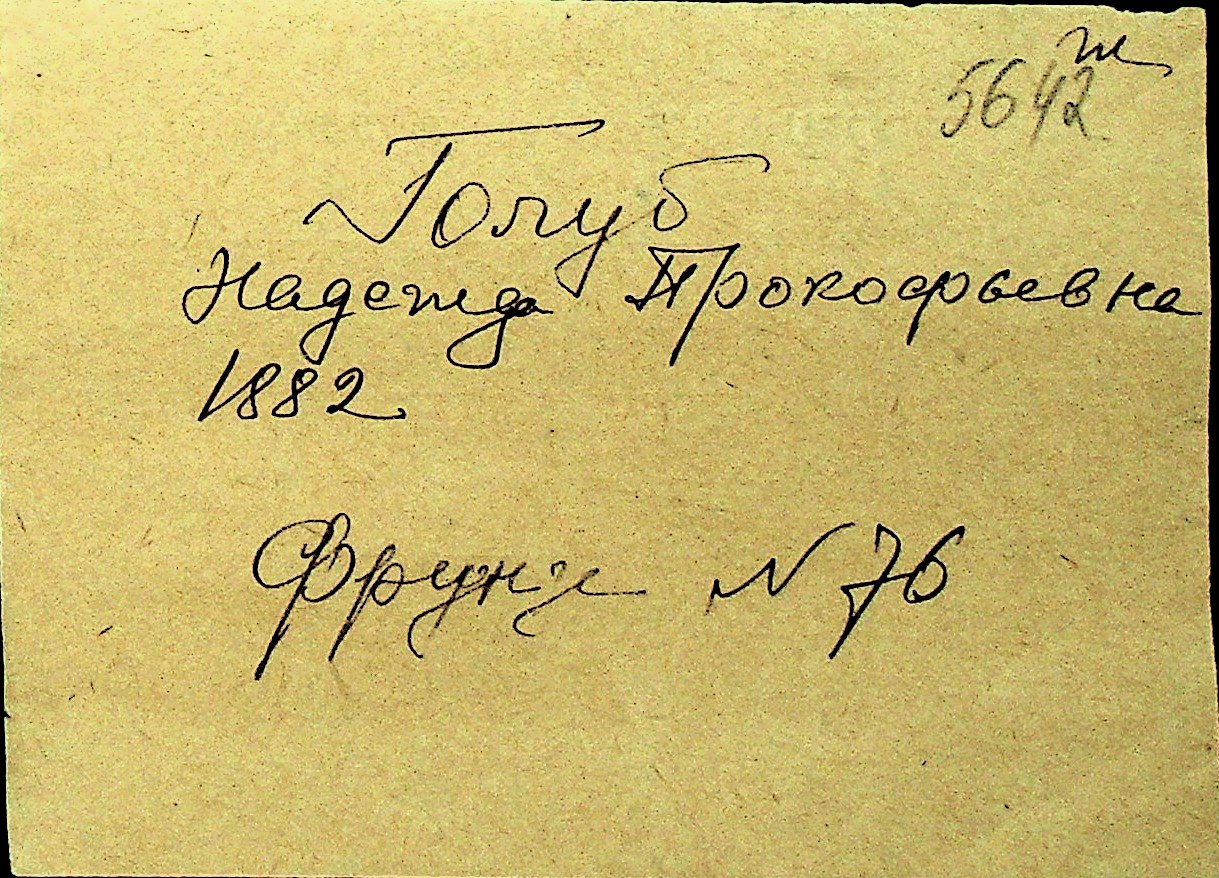 5642
Голуб
Надежда Прокофьевна
1882
Фрунзе N 76